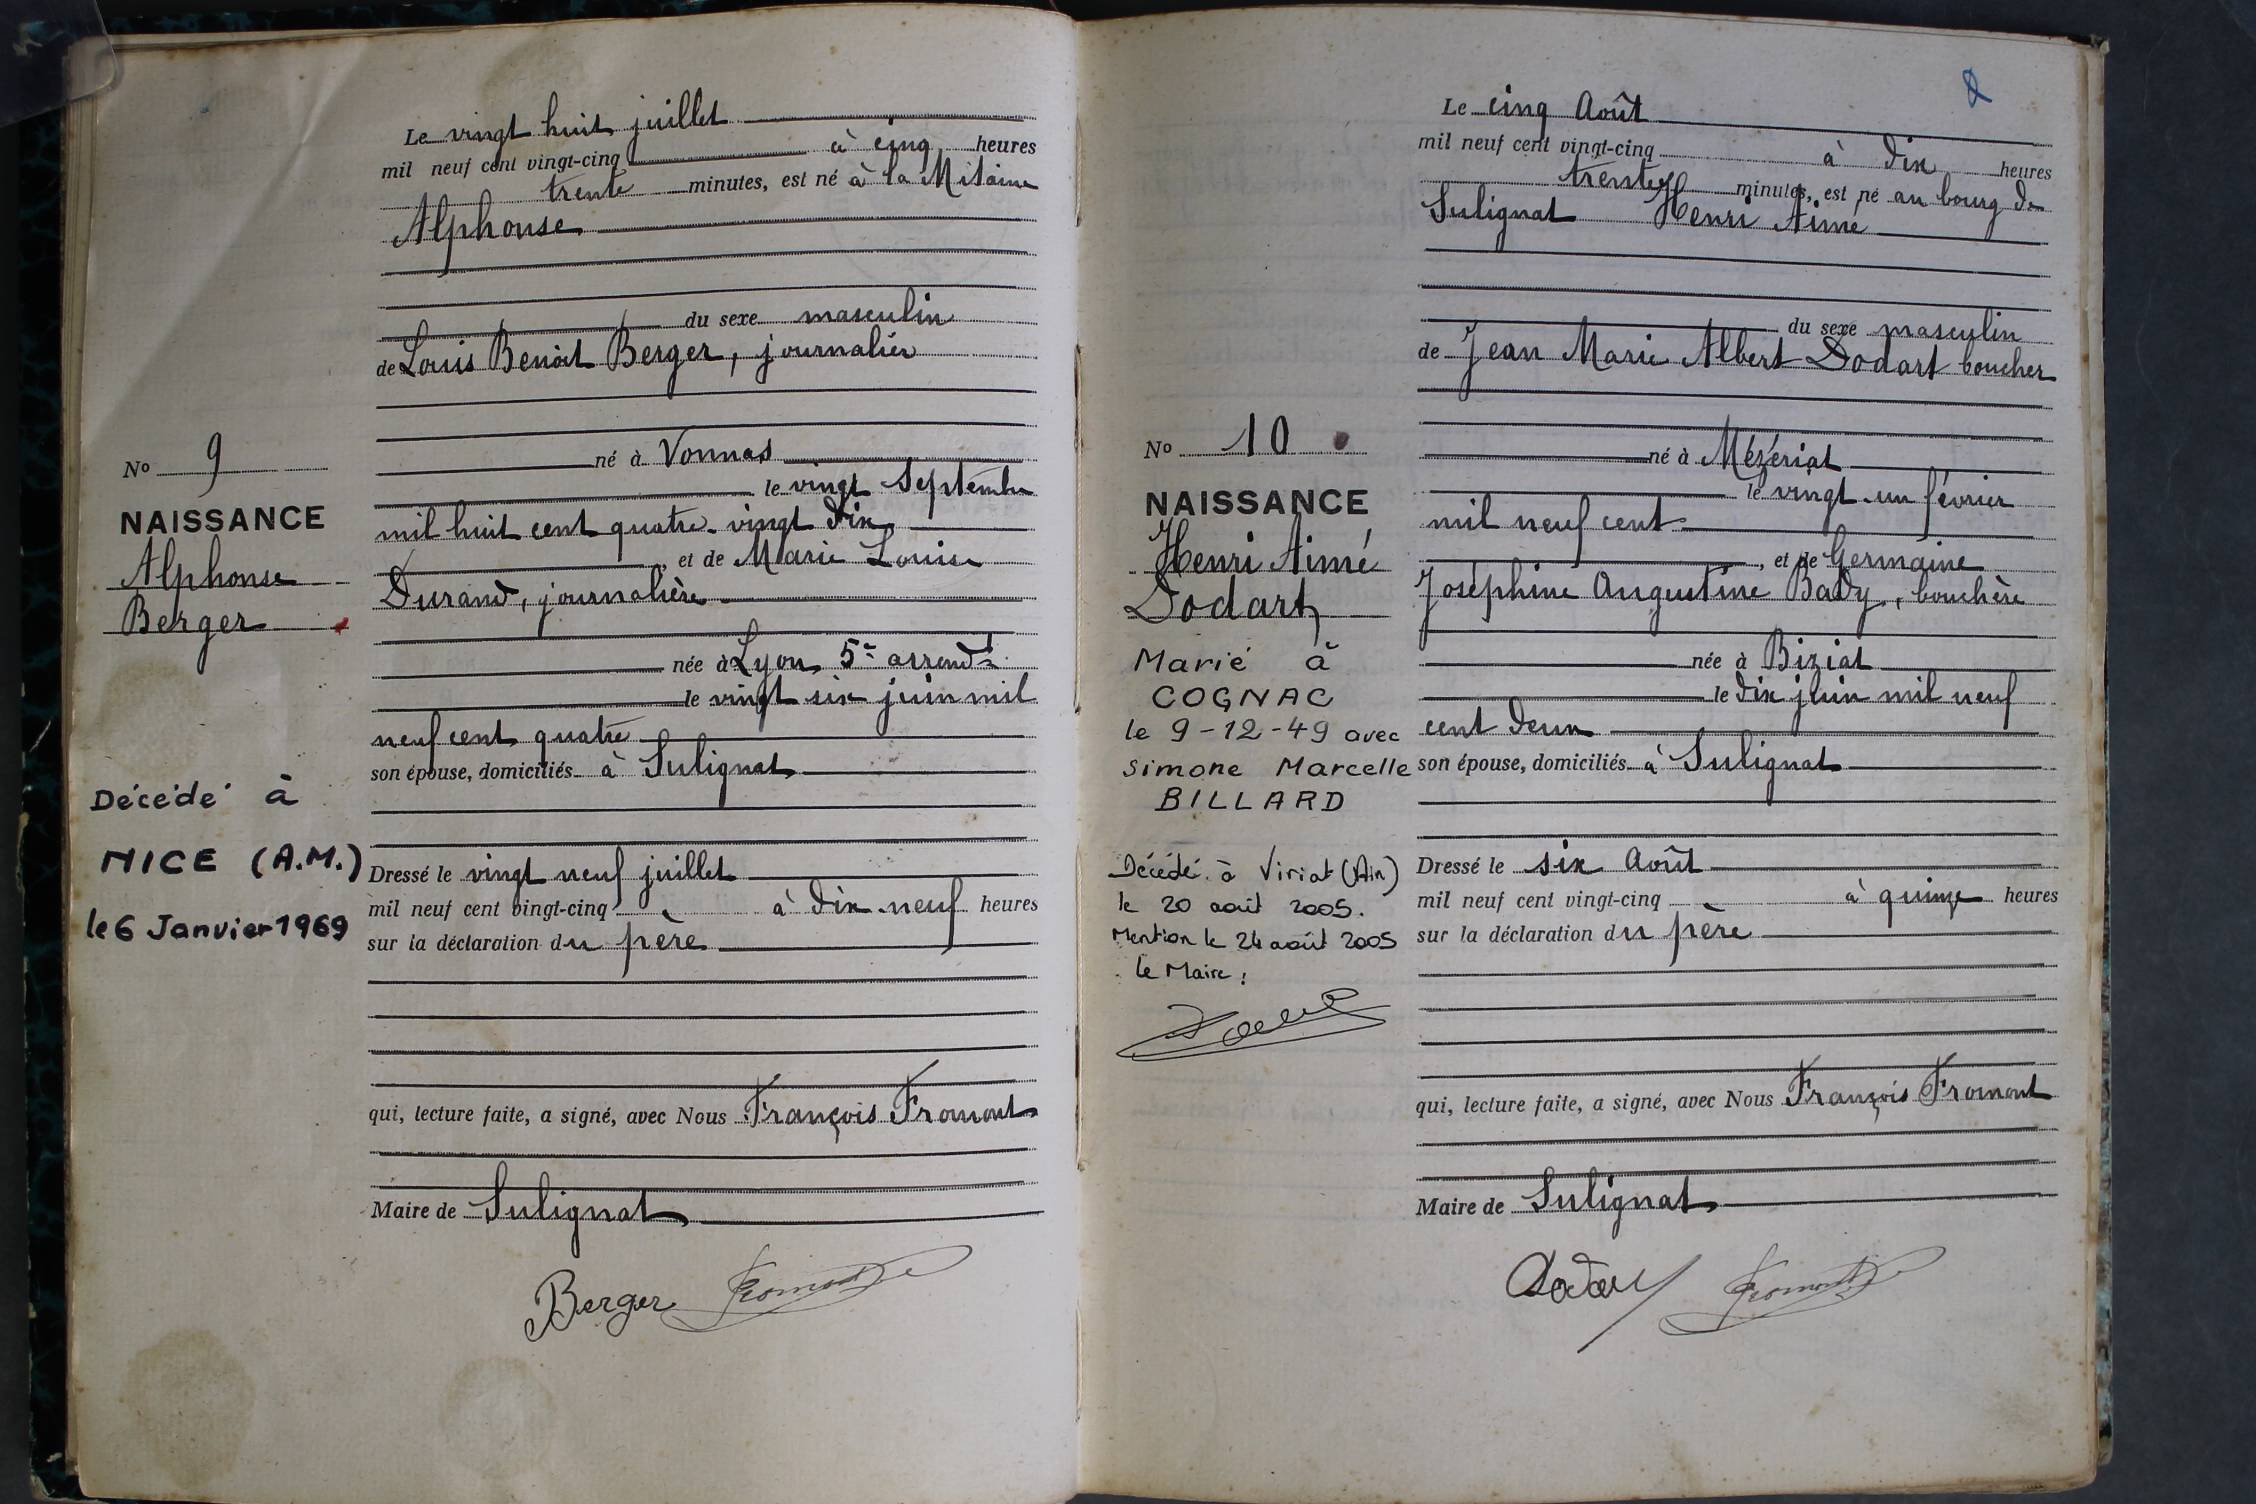 Le vingt huit juillet
mil neuf cent vingt-cinq à cinq heures
trente minutes, est né à la Mitaine
Alphonse
du sexe masculin
de Louis Benoit Berger, journalier
né à Vonnas
le vingt Septembre
mil huit cent quatre-vingt dix
, et de Marie Louise
Durand, journalière
née à Lyon 5e arrondt
le vingt six juin mil
neuf cent quatre
son épouse, domiciliés à Sulignat
Dressé le vingt neuf juillet
mil neuf cent vingt-cinq à dix-neuf heures
sur la déclaration du père
qui, lecture faite, a signé, avec Nous François Fromont
Maire de Sulignat
Berger Fromont
No 9
NAISSANCE
Alphonse
Berger
Décédé à
NICE (A.M.)
le 6 Janvier 1969
Le cinq Août
mil neuf cent vingt-cinq à dix heures
trente minutes, est né au bourg de
Sulignat Henri Aimé
du sexe masculin
de Jean Marie Albert Dodart boucher
né à Mézériat
le vingt-un février
mil neuf cent
, et de Germaine
Joséphine Augustine Bady, bouchère
née à Biziat
le dix juin mil neuf
cent deux
son épouse, domiciliés à Sulignat
Dressé le six Août
mil neuf cent vingt-cinq à quinze heures
sur la déclaration du père
qui, lecture faite, a signé, avec Nous François Fromont
Maire de Sulignat
Dodart Fromont
No 10
NAISSANCE
Henri Aimé
Dodart
Marié à
COGNAC
le 9-12-49 avec
Simone Marcelle
BILLARD
Décédé à Viriat (Ain)
le 20 août 2005.
Mention le 24 août 2005
le Maire :